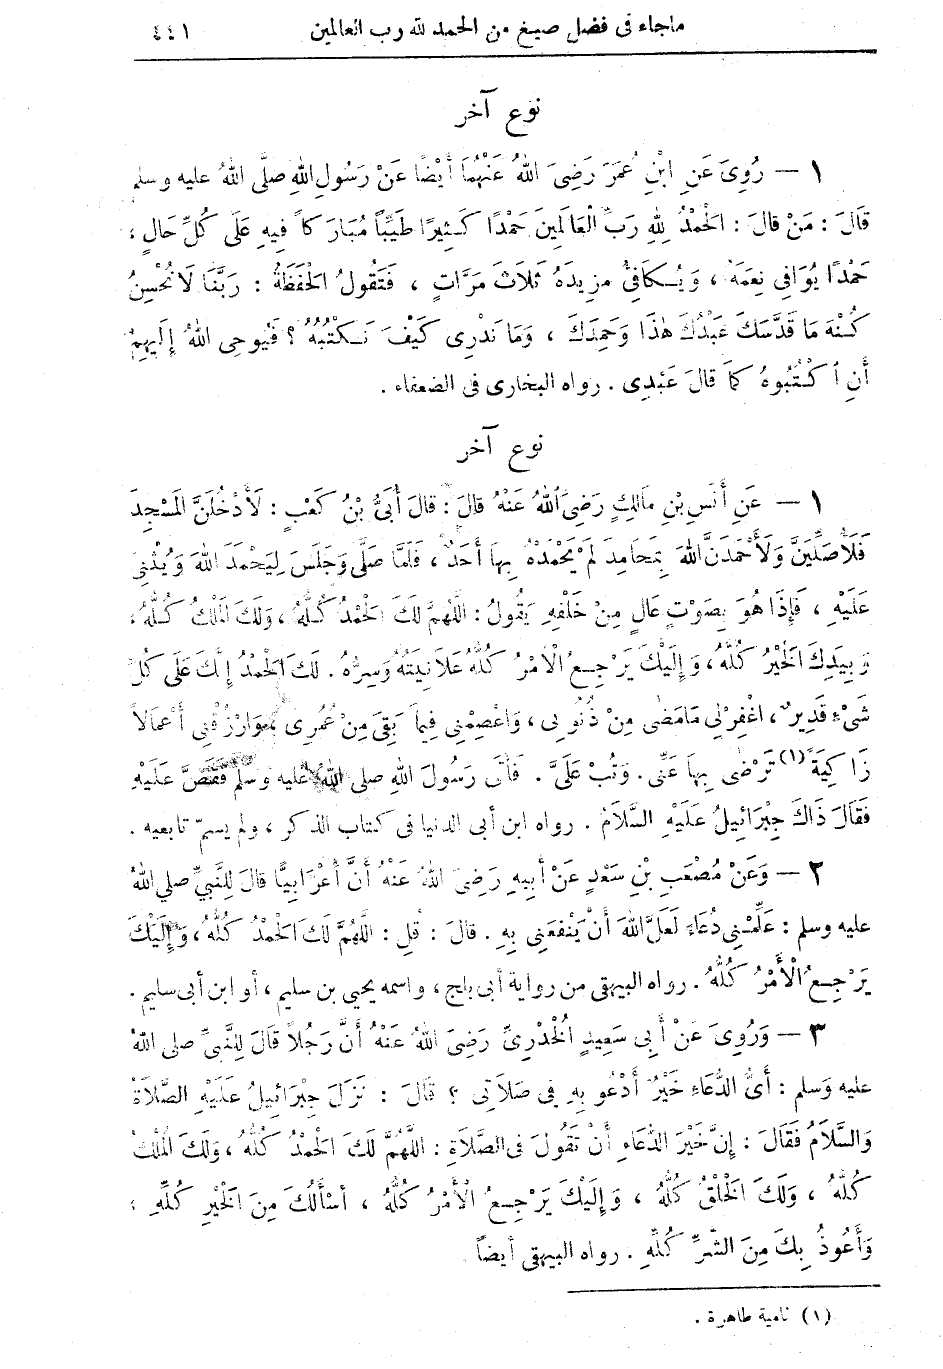 ماجاء فى فضل صيغ من الحمد لله رب العالمين ٤٤١
نوع آخر
١ — رُوِىَ عَنِ ابْنِ عُمَرَ رَضِىَ اللهُ عَنْهُمَا أَيْضًا عَنْ رَسُولِ اللهِ صَلَّى اللهُ عليه وسلم
قَالَ : مَنْ قَالَ : الْحَمْدُ لِلهِ رَبِّ الْعَالَمِينَ حَمْدًا كَثِيرًا طَيِّبًا مُبَارَكاً فِيهِ عَلَى كُلِّ حَالٍ ،
حَمْدًا يُوَافِى نِعَمَهُ ، وَيُكَافِىُّ مزِيدَهُ ثَلاَثَ مَرَّاتٍ ، فَتَقُولُ الْحَفَظَةُ : رَبَّنَا لاَ نُحْسِنُ
كُنْهَ مَا قَدَّسَكَ عَبْدُكَ هٰذَا وَحَمِدَكَ ، وَمَا نَدْرِى كَيْفَ نَكْتُبُهُ ؟ فَيُوحِى اللهُ إِلَيهِمْ
أَنِ اُكْتُبُوهُ كَمَا قَالَ عَبْدِى . رواه البخارى فى الضعفاء .
نوع آخر
١ — عَنِ أَنَسِ بْنِ مَالِكٍ رَضِىَ اللهُ عَنْهُ قَالَ : قَالَ أُبَىُّ بْنُ كَعْبٍ : لَأَدْخُلَنَّ المَسْجِدَ
فَلَأُصَلِّيَنَّ وَلَأَحْمَدَنَّ اللهَ بِمَحَامِدَ لَمْ يَحْمَدْهُ بِهَا أَحَدٌ ، فَلَمَّا صَلَّى وَجَلَسَ لِيَحْمَدَ اللهَ وَيُثْنِىَ
عَلَيْهِ ، فَإِذَا هُوَ بِصَوْتٍ عَالٍ مِنْ خَلْفِهِ يَقُولُ : اللّٰهُمَّ لَكَ الْحَمْدُ كُلُّهُ ، وَلَكَ الْمُلْكُ كُلُّهُ ،
وَبِيَدِكَ الْخَيْرُ كُلُّهُ ، وَإِلَيْكَ يَرْجِعُ الْأَمْرُ كُلُّهُ عَلاَنِيَتُهُ وَسِرُّهُ . لَكَ الْحَمْدُ إِنَّكَ عَلَى كُلِّ
شَىْءٍ قَدِيرٌ ، اغْفِرْ لِى مَا مَضَى مِنْ ذُنُوبِى ، وَاعْصِمْنِى فِيمَا بَقِىَ مِنْ عُمُرِى ، وَارْزُقْنِى أَعْمَالاً
زَاكِيَةً (١) تَرْضَى بِهَا عَنِّى . وَتُبْ عَلَىَّ . فَأَتَى رَسُولَ اللهِ صلى اللهُ عليه وسلم فَقَصَّ عَلَيْهِ
فَقَالَ ذَاكَ جِبْرَائِيلُ عَلَيْهِ السَّلاَمُ . رواه ابن أبى الدنيا فى كتاب الذكر ، ولم يسمّ تابعيه .
٢ — وَعَنْ مُصْعَبِ بْنِ سَعْدٍ عَنْ أَبِيهِ رَضِىَ اللهُ عَنْهُ أَنَّ أَعْرَابِيًّا قَالَ لِلنَّبِيِّ صلى اللهُ
عليه وسلم : عَلِّمْنِى دُعَاءً لَعَلَّ اللهَ أَنْ يَنْفَعَنِى بِهِ . قَالَ : قُلِ : اللّٰهُمَّ لَكَ الْحَمْدُ كُلُّهُ ، وَإِلَيْكَ
يَرْجِعُ الْأَمْرُ كُلُّهُ . رواه البيهقى من رواية أبى بلج ، واسمه يحيى بن سليم ، أو ابن أبى سليم .
٣ — وَرُوِىَ عَنْ أَبِى سَعِيدٍ الْخُدْرِىِّ رَضِىَ اللهُ عَنْهُ أَنَّ رَجُلاً قَالَ لِلنَّبِيِّ صلى اللهُ
عليه وَسلم : أَىُّ الدُّعَاءِ خَيْرٌ أَدْعُو بِهِ فِى صَلاَتِى ؟ قَالَ : نَزَلَ جِبْرَائِيلُ عَلَيْهِ الصَّلاَةُ
وَالسَّلاَمُ فَقَالَ : إِنَّ خَيْرَ الدُّعَاءِ أَنْ تَقُولَ فِى الصَّلاَةِ : اللّٰهُمَّ لَكَ الْحَمْدُ كُلُّهُ ، وَلَكَ الْمُلْكُ
كُلُّهُ ، وَلَكَ الْخَلْقُ كُلُّهُ ، وَإِلَيْكَ يَرْجِعُ الْأَمْرُ كُلُّهُ ، أَسْأَلُكَ مِنَ الْخَيْرِ كُلِّهِ ،
وَأَعُوذُ بِكَ مِنَ الشَّرِّ كُلِّهِ . رواه البيهقى أيضاً
(١) نامية طاهرة .